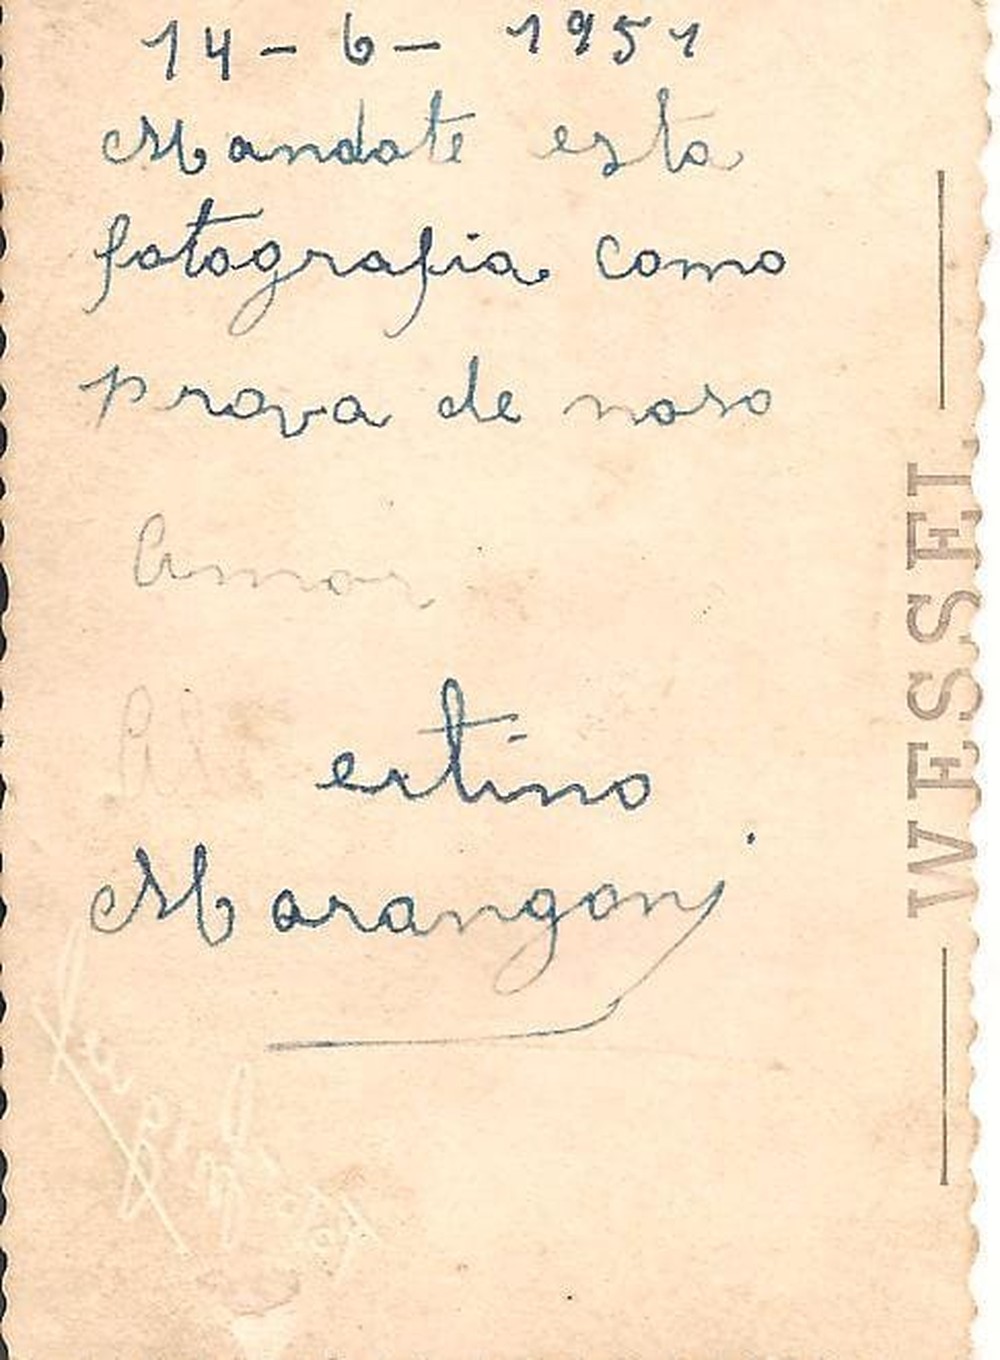 14 - 6 - 1951
Mandate esta
fotografia como
prova de noso
Amor
ertino
Marangoni
WESSEL